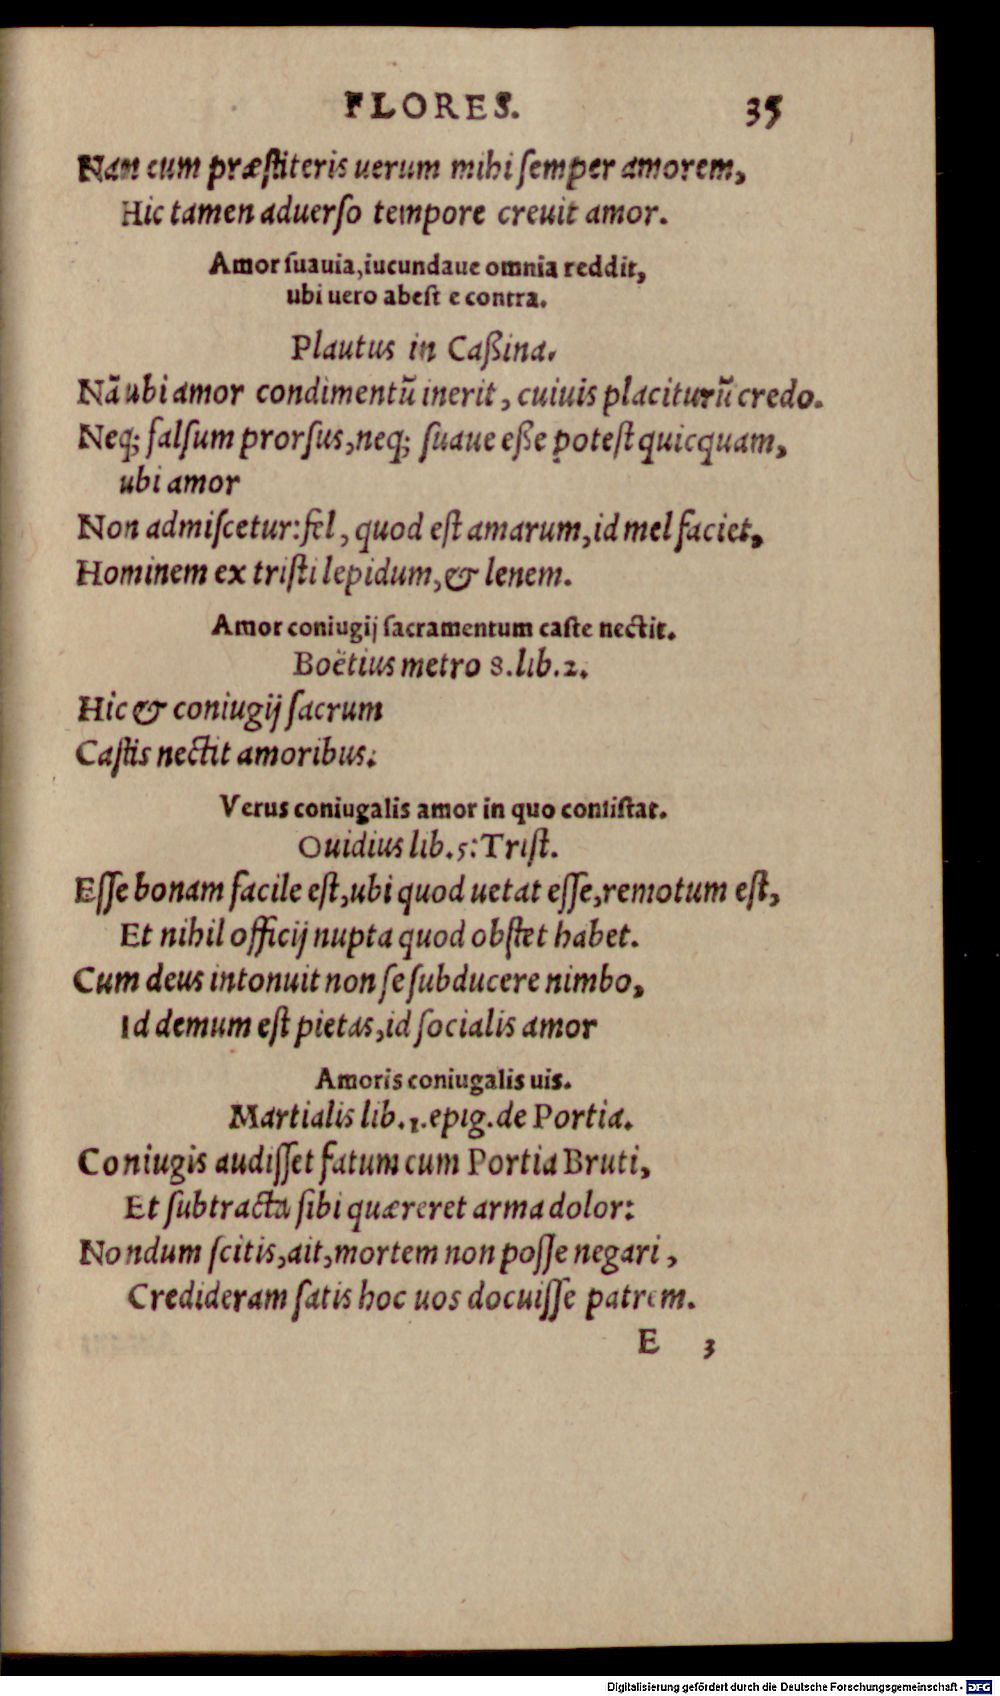 FLORES. 35
Nan cum præſtiteris uerum mihi ſemper amorem,
Hic tamen aduerſo tempore creuit amor.
Amor ſuauia, iucundaue omnia reddit,
ubi uero abeſt e contra.
Plautus in Caßina.
Nā ubi amor condimentū inerit, cuiuis placiturū credo.
Neq; ſalſum prorſus, neq; ſuaue eße poteſt quicquam,
ubi amor
Non admiſcetur: fel, quod eſt amarum, id mel faciet,
Hominem ex triſti lepidum, & lenem.
Amor coniugij ſacramentum caſte nectit.
Boëtius metro 8. lib. 2.
Hic & coniugij ſacrum
Caſtis nectit amoribus:
Verus coniugalis amor in quo conſiſtat.
Ouidius lib. 5: Triſt.
Eſſe bonam facile eſt, ubi quod uetat eſſe, remotum eſt,
Et nihil officij nupta quod obſtet habet.
Cum deus intonuit non ſe ſubducere nimbo,
Id demum eſt pietas, id ſocialis amor
Amoris coniugalis uis.
Martialis lib. 1. epig. de Portia.
Coniugis audiſſet fatum cum Portia Bruti,
Et ſubtracta ſibi quæreret arma dolor:
Nondum ſcitis, ait, mortem non poſſe negari,
Credideram ſatis hoc uos docuiſſe patrem.
E 3
Digitalisierung gefördert durch die Deutsche Forschungsgemeinschaft - DFG